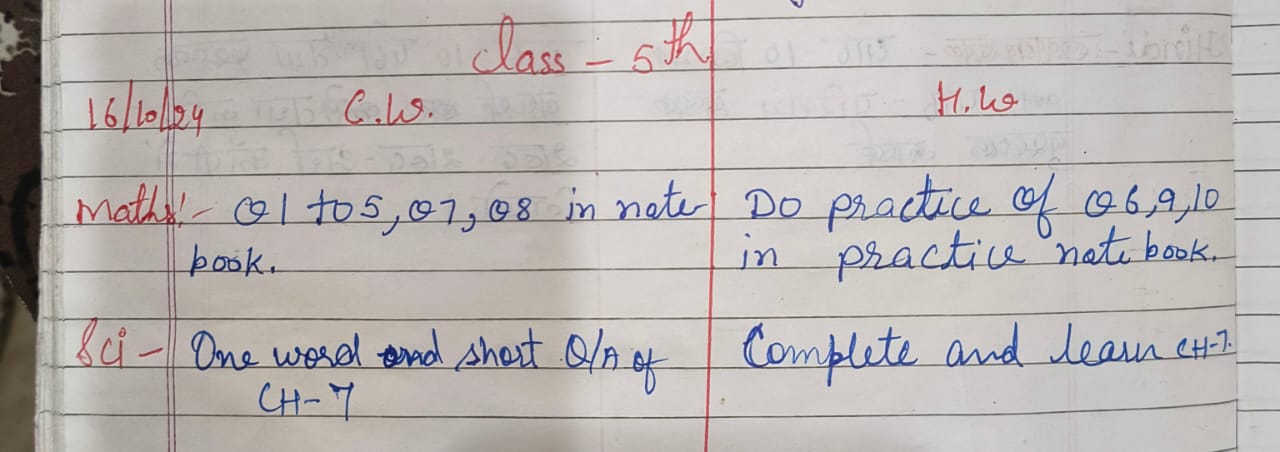 Class - 5th
16/10/24 C.W. H.W
Maths:- Q1 to 5, Q7, Q8 in note Do practice of Q6,9,10
book. in practice note book.
Sci - One word and short Q/A of Complete and learn CH-7.
CH-7